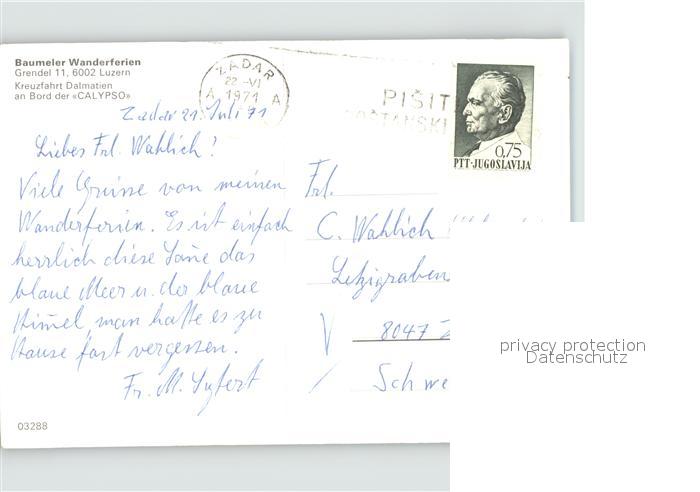 Baumeler Wanderferien
Grendel 11, 6002 Luzern
Kreuzfahrt Dalmatien
an Bord der «CALYPSO»
ZADAR
22.-VI
1971
A A
PIŠIT
POŠTANSKI
0,75
PTT-JUGOSLAVIJA
Zadar 21. Juli 71
Liebes Frl. Wahlich!
Viele Grüsse von meinen
Wanderferien. Es ist einfach
herrlich diese Sonne das
blaue Meer u. der blaue
Himmel, man hatte es zu
Hause fast vergessen.
Fr. M.
Frl.
C. Wahlich
Letzigraben
8047 Z
Schwe
03288
privacy protection
Datenschutz